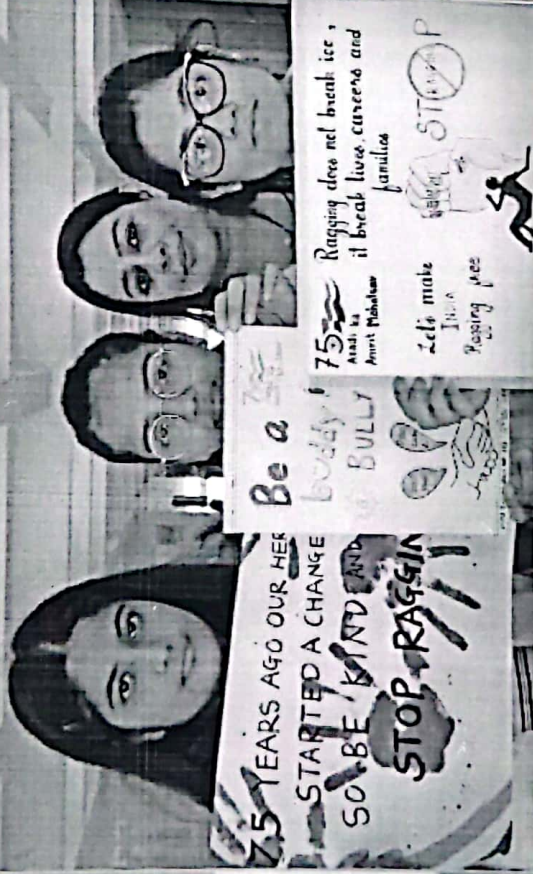 75 YEARS AGO OUR HER
STARTED A CHANGE
SO BE KIND AND
STOP RAGGIN
Be a
buddy
BULLY
75
Azadi ka
Amrit Mahotsav
Ragging does not break ice,
it break lives, careers and
families
STOP
Let's make
INDIA
Ragging free